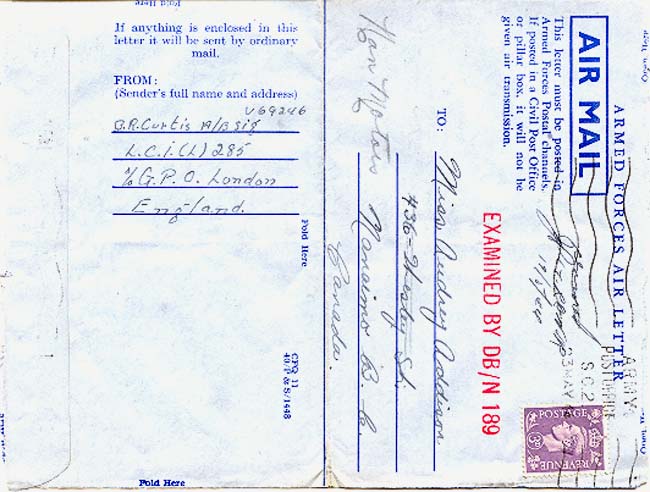 Fold Here
If anything is enclosed in this
letter it will be sent by ordinary
mail.
FROM:
(Sender's full name and address)
V69246
B.R. Curtis A/B Sig
L.C.I.(L) 285
℅ G.P.O. London
England.
Fold Here
CPQ 11
Fold Here
ARMED FORCES AIR LETTER
AIR MAIL
This letter must be posted in
Armed Forces Postal channels.
If posted in a Civil Post Office
or pillar box, it will not be
given air transmission.
TO:
Miss Audrey Addison
436 Wesley St.
Nanaimo B.C.
Canada.
EXAMINED BY DB/N 189
ARMY
POST OFFICE
SC2
23 MAY
POSTAGE
3D
REVENUE